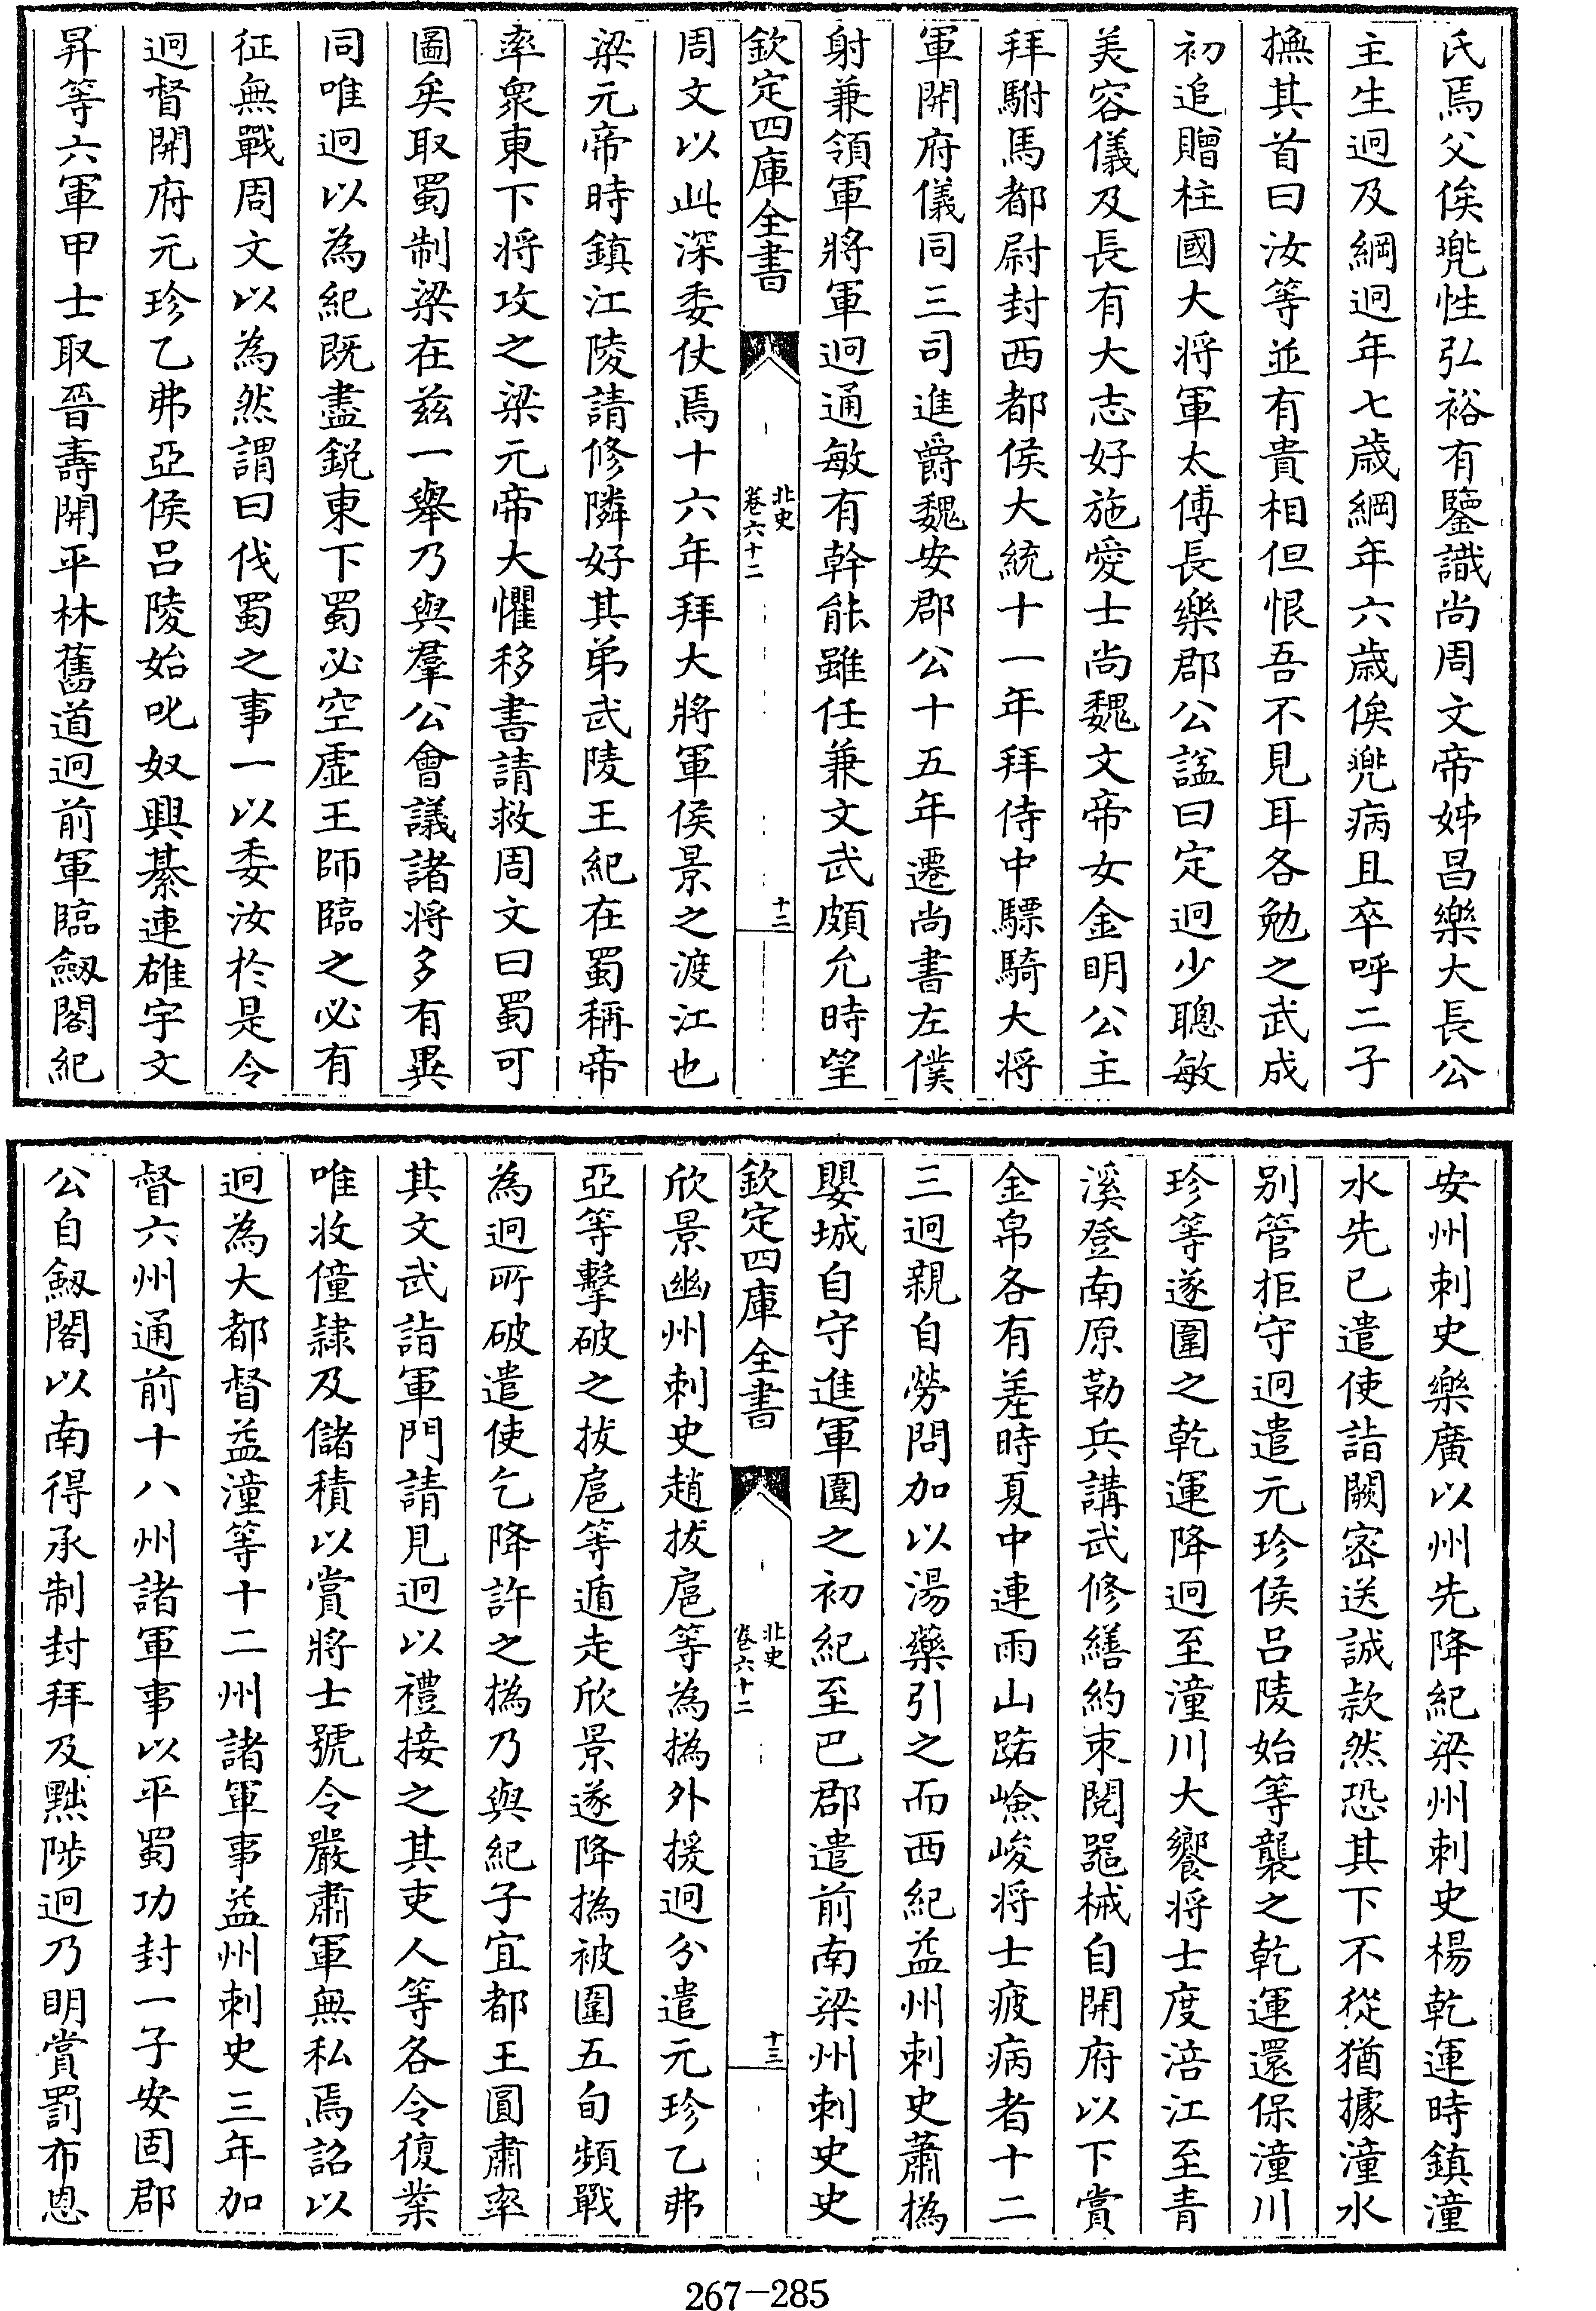 氏焉父俟兜性弘裕有鑒識尚周文帝姊昌樂大長公
主生迥及綱迥年七歲綱年六歲俟兜病且卒呼二子
撫其首曰汝等並有貴相但恨吾不見耳各勉之武成
初追贈柱國大將軍太傅長樂郡公諡曰定迥少聰敏
美容儀及長有大志好施愛士尚魏文帝女金明公主
拜駙馬都尉封西都侯大統十一年拜侍中驃騎大將
軍開府儀同三司進爵魏安郡公十五年遷尚書左僕
射兼領軍將軍迥通敏有幹能雖任兼文武頗允時望
欽定四庫全書
北史
卷六十二
十二
周文以此深委仗焉十六年拜大將軍侯景之渡江也
梁元帝時鎮江陵請修隣好其弟武陵王紀在蜀稱帝
率衆東下將攻之梁元帝大懼移書請救周文曰蜀可
圖矣取蜀制梁在兹一舉乃與羣公會議諸將多有異
同唯迥以為紀既盡銳東下蜀必空虛王師臨之必有
征無戰周文以為然謂曰伐蜀之事一以委汝於是令
迥督開府元珍乙弗亞侯呂陵始叱奴興綦連雄宇文
昇等六軍甲士取晉壽開平林舊道迥前軍臨劔閣紀
安州刺史樂廣以州先降紀梁州刺史楊乾運時鎮潼
水先已遣使詣闕密送誠款然恐其下不從猶據潼水
别管拒守迥遣元珍侯呂陵始等襲之乾運還保潼川
珍等遂圍之乾運降迥至潼川大饗將士度涪江至青
溪登南原勒兵講武修繕約束閱器械自開府以下賞
金帛各有差時夏中連雨山路嶮峻將士疲病者十二
三迥親自勞問加以湯藥引之而西紀益州刺史蕭撝
嬰城自守進軍圍之初紀至巴郡遣前南梁州刺史史
欽定四庫全書
北史
卷六十二
十三
欣景幽州刺史趙拔扈等為撝外援迥分遣元珍乙弗
亞等擊破之拔扈等遁走欣景遂降撝被圍五旬頻戰
為迥所破遣使乞降許之撝乃與紀子宜都王圓肅率
其文武詣軍門請見迥以禮接之其吏人等各令復業
唯收僮隸及儲積以賞將士號令嚴肅軍無私焉詔以
迥為大都督益潼等十二州諸軍事益州刺史三年加
督六州通前十八州諸軍事以平蜀功封一子安固郡
公自劔閣以南得承制封拜及黜陟迥乃明賞罰布恩
267-285